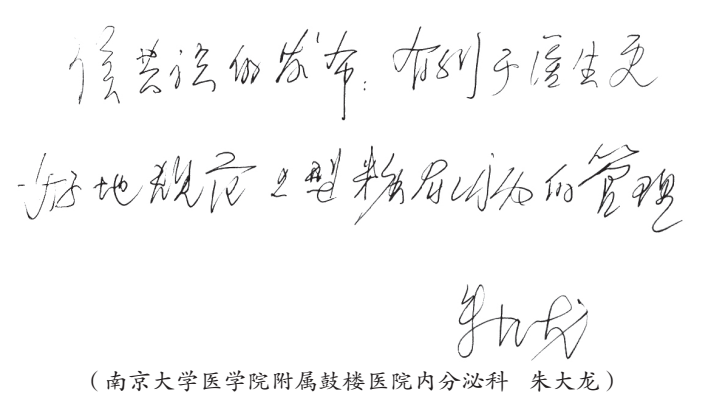 该共识的发布，有利于医生更
好地规范2型糖尿病的管理
朱大龙
（南京大学医学院附属鼓楼医院内分泌科 朱大龙）